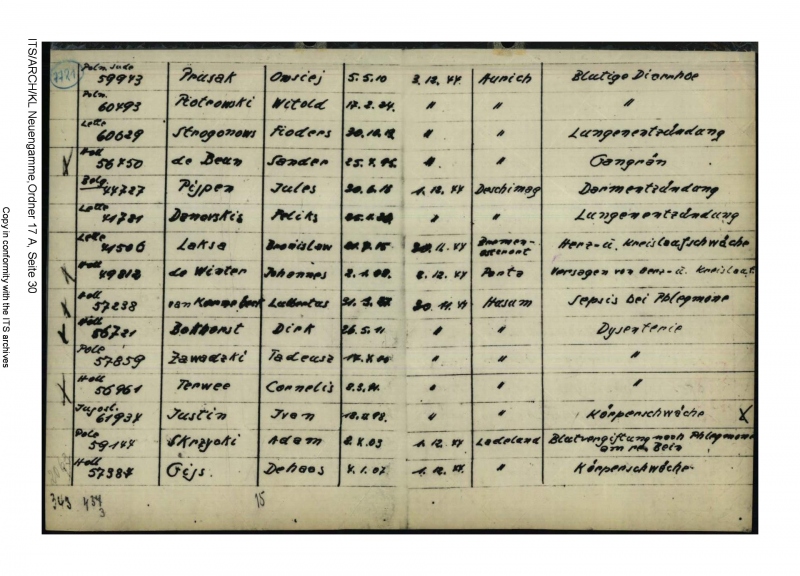 ITS/ARCH/KL Neuengamme, Ordner 17 A, Seite 30
Copy in conformity with the ITS archives
7721
Poln. Jude 59943 Prusak 5.5.10 3.12.44 Aurich Blutige Diarrhoe
Poln. 60493 Piotrowski Witold 17.2.24. " " "
Lette 60029 Strogonows Fioders " " Lungenentzündung
Holl 56450 de Bean Sander " " Gangrän
Belg. 44727 Pijpen Jules 1.12.44 Deschimag Darmentzündung
Lette 41721 Danovskis Feliks " " Lungenentzündung
Lette 41506 Laksa Bronislaw Bremen-osterort Herz-u. Kreislaufschwäche
Holl 49812 de Winter Johannes 2.12.44 Porta Versagen von Herz-u. Kreislauf
Holl 57238 Lubbertus 30.11.44 Husum Sepsis bei Phlegmone
Holl 56721 Bokhorst Dirk 26.5.11 " " Dysenterie
Pole 57859 Zawadzki Tadeusz " " "
Holl 56961 Terwee Cornelis " " "
Jugosl. 61934 Justin Ivan " " Körperschwäche
Pole 59144 Skrzycki Adam 2.4.03 1.12.44 Ladeland Blutvergiftung nach Phlegmone
am re. Bein
Holl 57387 Gijs. Dehaas 4.1.07 1.12.44 " Körperschwäche
343 434 15
3